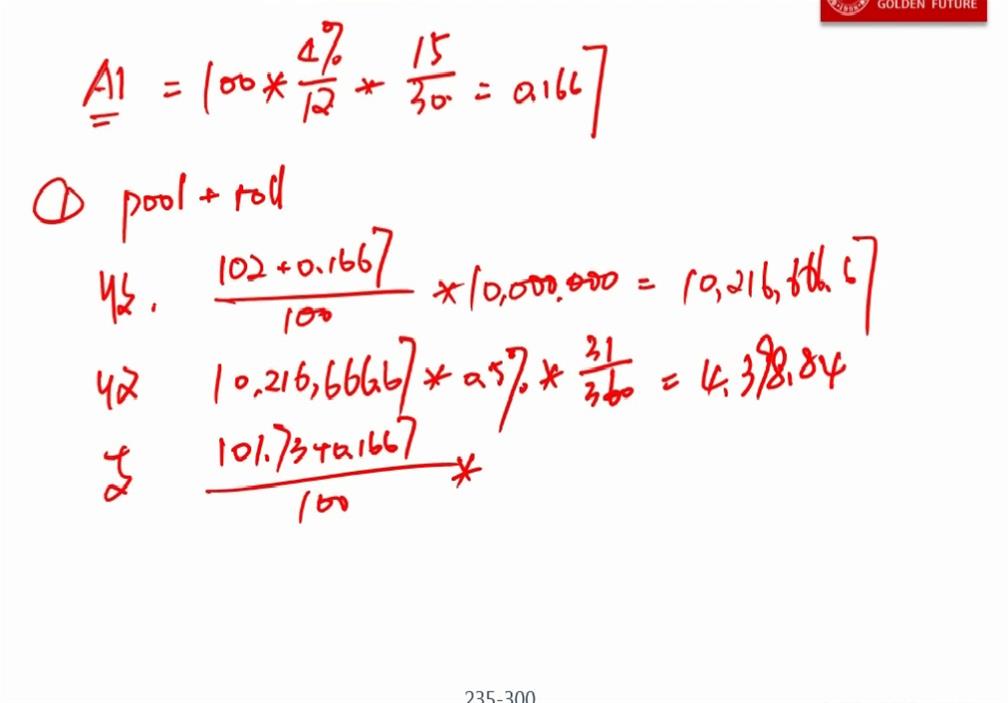 GOLDEN FUTURE
A1 = 100 * 4%/12 * 15/30 = 0.1667
① pool + roll
收. 102+0.1667/100 * 10,000,000 = 10,216,666.67
10,216,666.67 * 0.5% * 31/360 = 4,398.84
101.73+0.1667/100 *
235-300